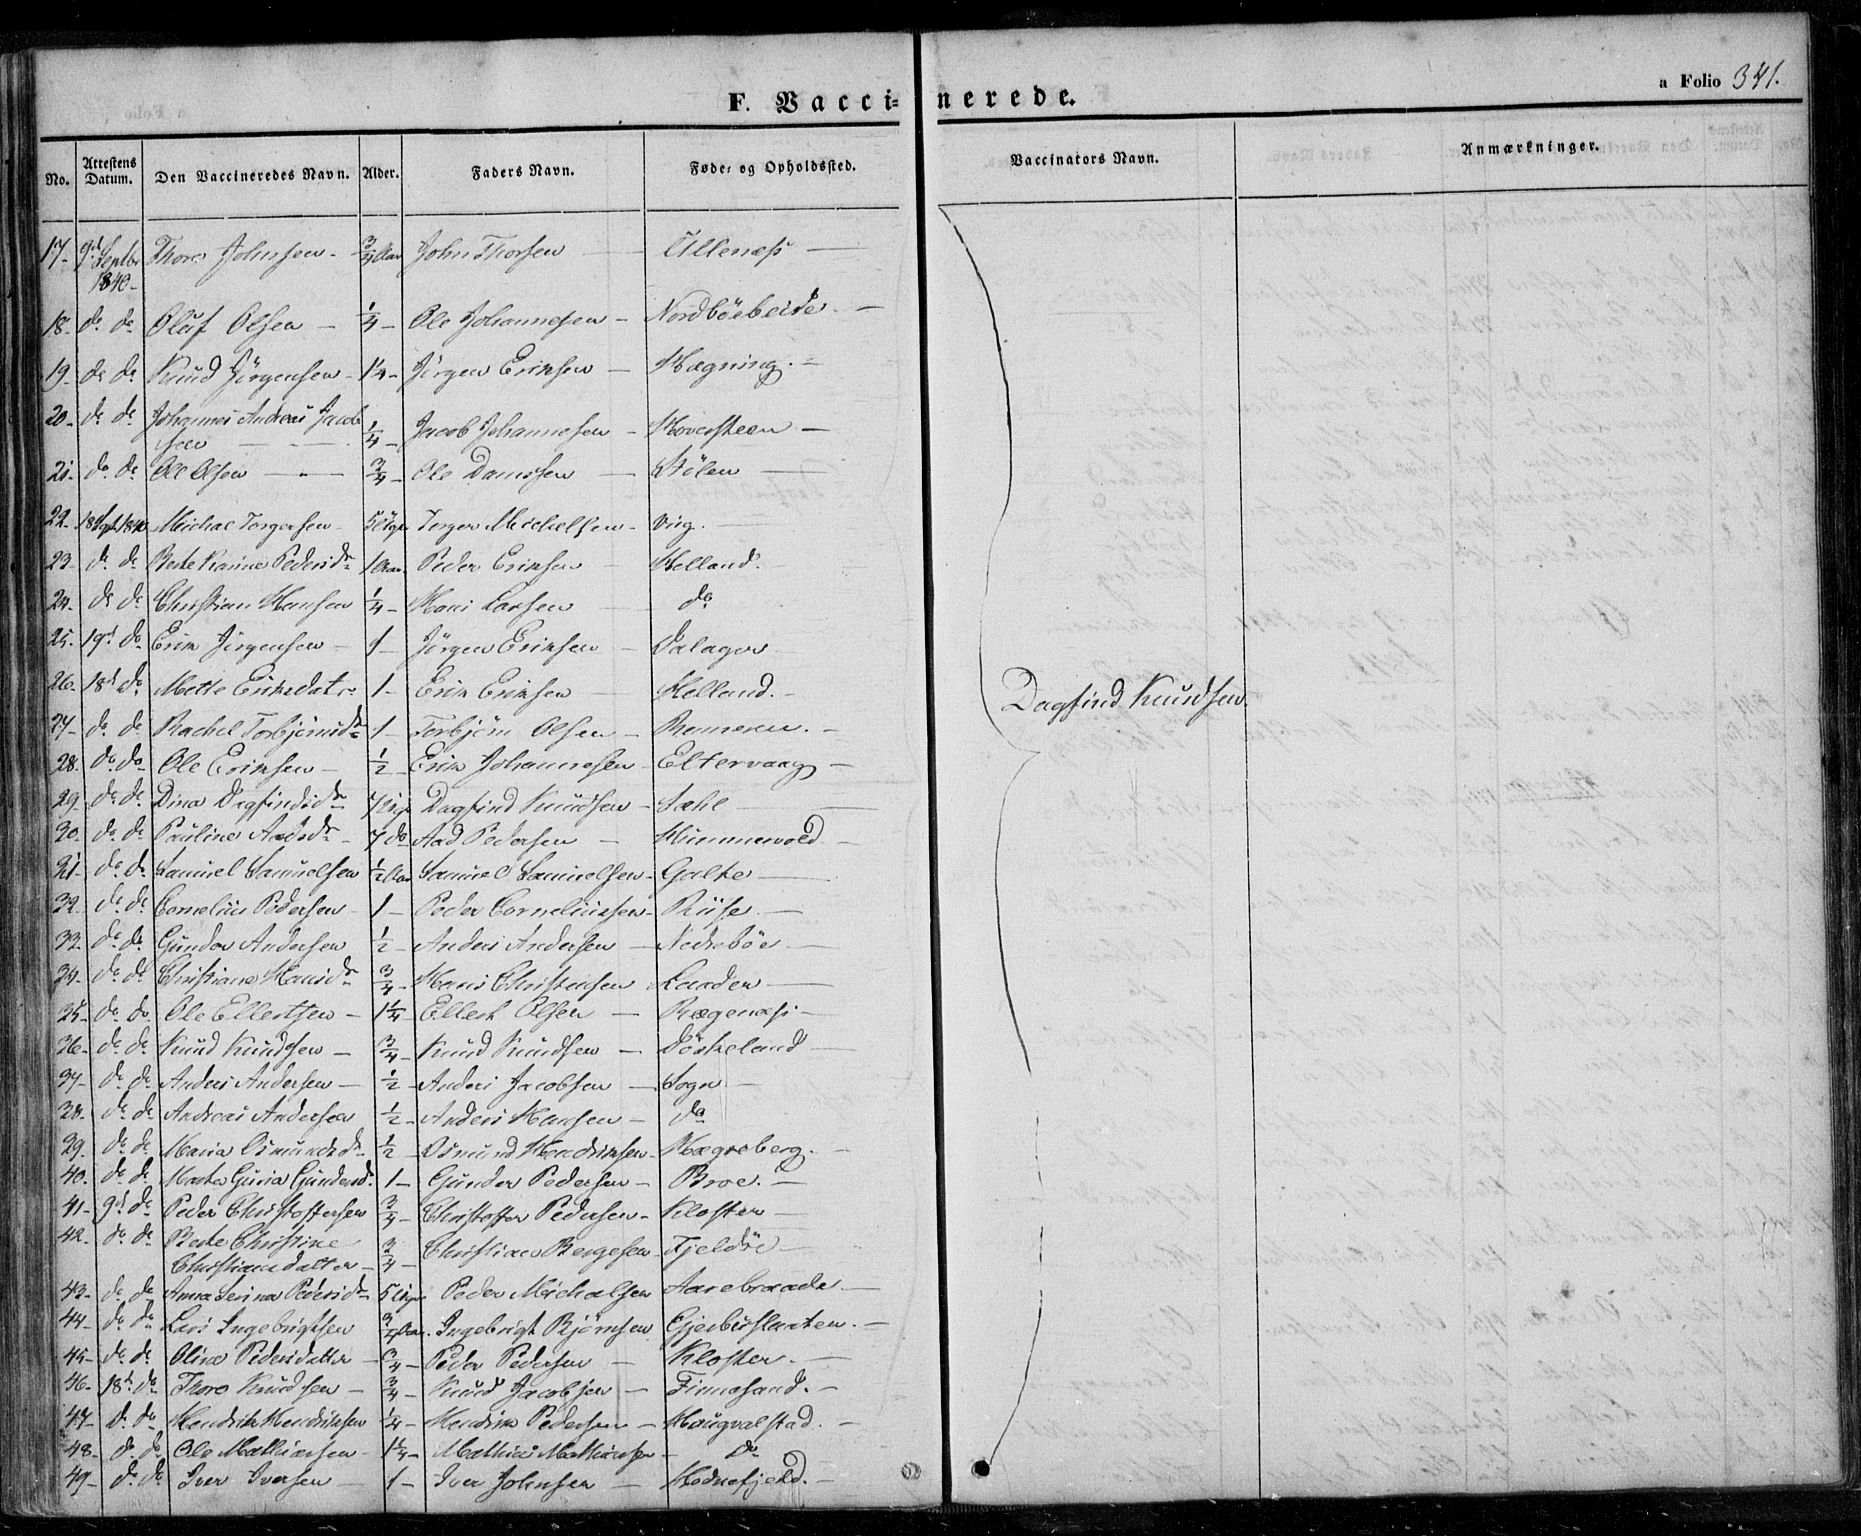 F. Vaccinerede.
a Folio 341.
No. Attestens Datum. Den Vaccineredes Navn. Alder. Faders Navn. Føde- og Opholdssted. Vaccinators Navn. Anmærkninger.
17- 9d Septbr 1840- Thore Johnsen - 3/4 Aar John Thorsen - Ullenæss -
18- do do Oluf Olsen - 1/4 - Ole Johannesen - Nordböebeide -
19- do do Knud Jörgensen - 1 1/4 - Jörgen Eriksen - Hægning. -
20- do do Johannes Andreas Jacob
sen - 1/4 - Jacob Johannesen - Hoversteen -
21- do do Ole Olsen - 3/4 - Ole - Stölen -
22- 18 Sept 1840 Michal Torgersen - 5 Uger Torger Michelsen - Vig. -
23- do do Berte Karine Pedersdr 1 Aar. Peder Eriksen - Helland.
24- do do Christian Hansen 1/4 - Hans Larsen do
25- 19d do Erik Jörgensen - 1 - Jörgen Eriksen - Dalager
26- 18d do Mette Eriksdatr 1 - Erik Eriksen Helland. -
27- do do Rachel Torbjörnsdr 1 - Torbjörn Olsen - Renneren. -
28- do do Ole Eriksen - 1/2 - Erik Johannesen - Eltervaag -
29- do do Dina Dagfindsdr 7 Uger Dagfind Knudsen - Sæhl -
30- do do Pauline Aadsdr 7 do Aad Pedersen - Hummervold -
31- do do Samuel Samuelsen 1/2 Aar Samuel Samuelsen - Galte -
32- do do Cornelius Pedersen - 1 - Peder Corneliussen - Riise -
33- do do Gunder Andersen 1/2 - Anders Andersen - Nedreböe -
34- do do Christiane Hansdr 3/4 - Hans Christensen Laaden -
35- do do Ole Ellertsen - 1 1/4 - Ellert Olsen - Rægenæss -
36- do do Knud Knudsen - 3/4 - Knud Knudsen - Döskeland -
37- do do Anders Andersen - 1/2 - Anders Jacobsen - Sogn -
38- do do Andreas Andersen 1/2 - Anders Hansen - do
39- do do Maria Osmundsdr 1/2 - Osmund Hendriksen - Hægreberg. -
40- do do Marta Guria Gundersd. 1 - Gunder Pedersen - Broe. -
41- 9d do Peder Christoffersen 3/4 - Christoffer Pedersen - Kloster -
42- do do Berte Christine
Christiansdatter - 3/4 - Christian Bergesen - Fjeldöe -
43- do do Anna Serina Pedersdr 5 Uger Peder Michalsen Aarebraade -
44- do do Lars Ingebrigtsen 3/4 Aar. Ingebrigt Björnsen Gjerbuslaaten. -
45- do do Oline Pedersdatter - 3/4 - Peder Pedersen - Kloster. -
46- 18d do Thore Knudsen - 3/4 - Knud Jacobsen - Finnesand. -
47- do do Hendrik Hendriksen 1/4 - Hendrik Pedersen - Haugvalstad. -
48- do do Ole Mathiasen - 1 1/4 - Mathias Mathiasen - do
49- do do Iver Iversen - 1 - Iver Johnsen - Hodnefjeld. -
Dagfind Knudsen.